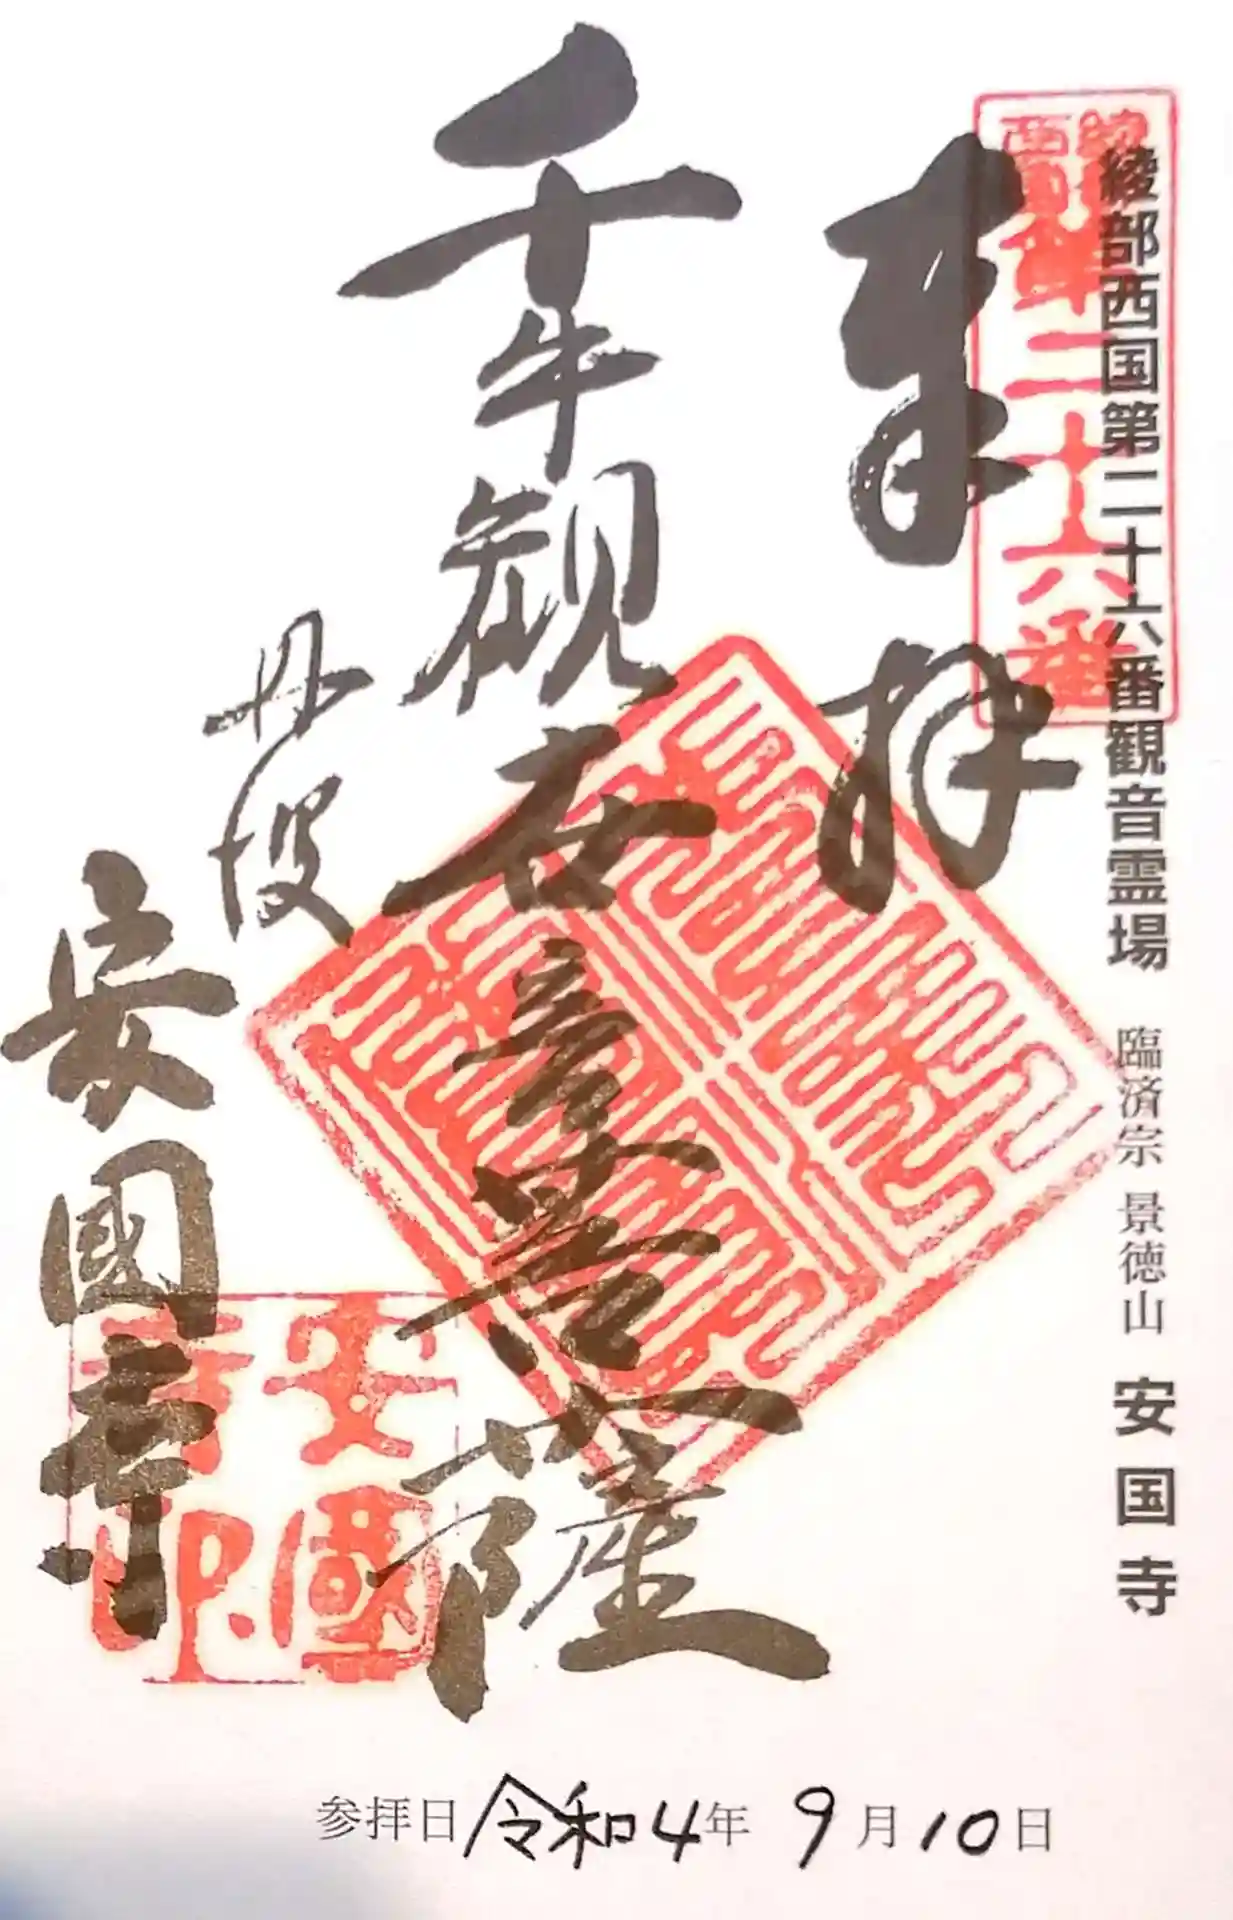 綾部西国第二十六番観音霊場 臨済宗 景徳山 安国寺
綾部
西国第二十六番
奉拝
千手観世音菩薩
丹波
安國寺
安國
寺印
参拝日 令和4年 9月10日